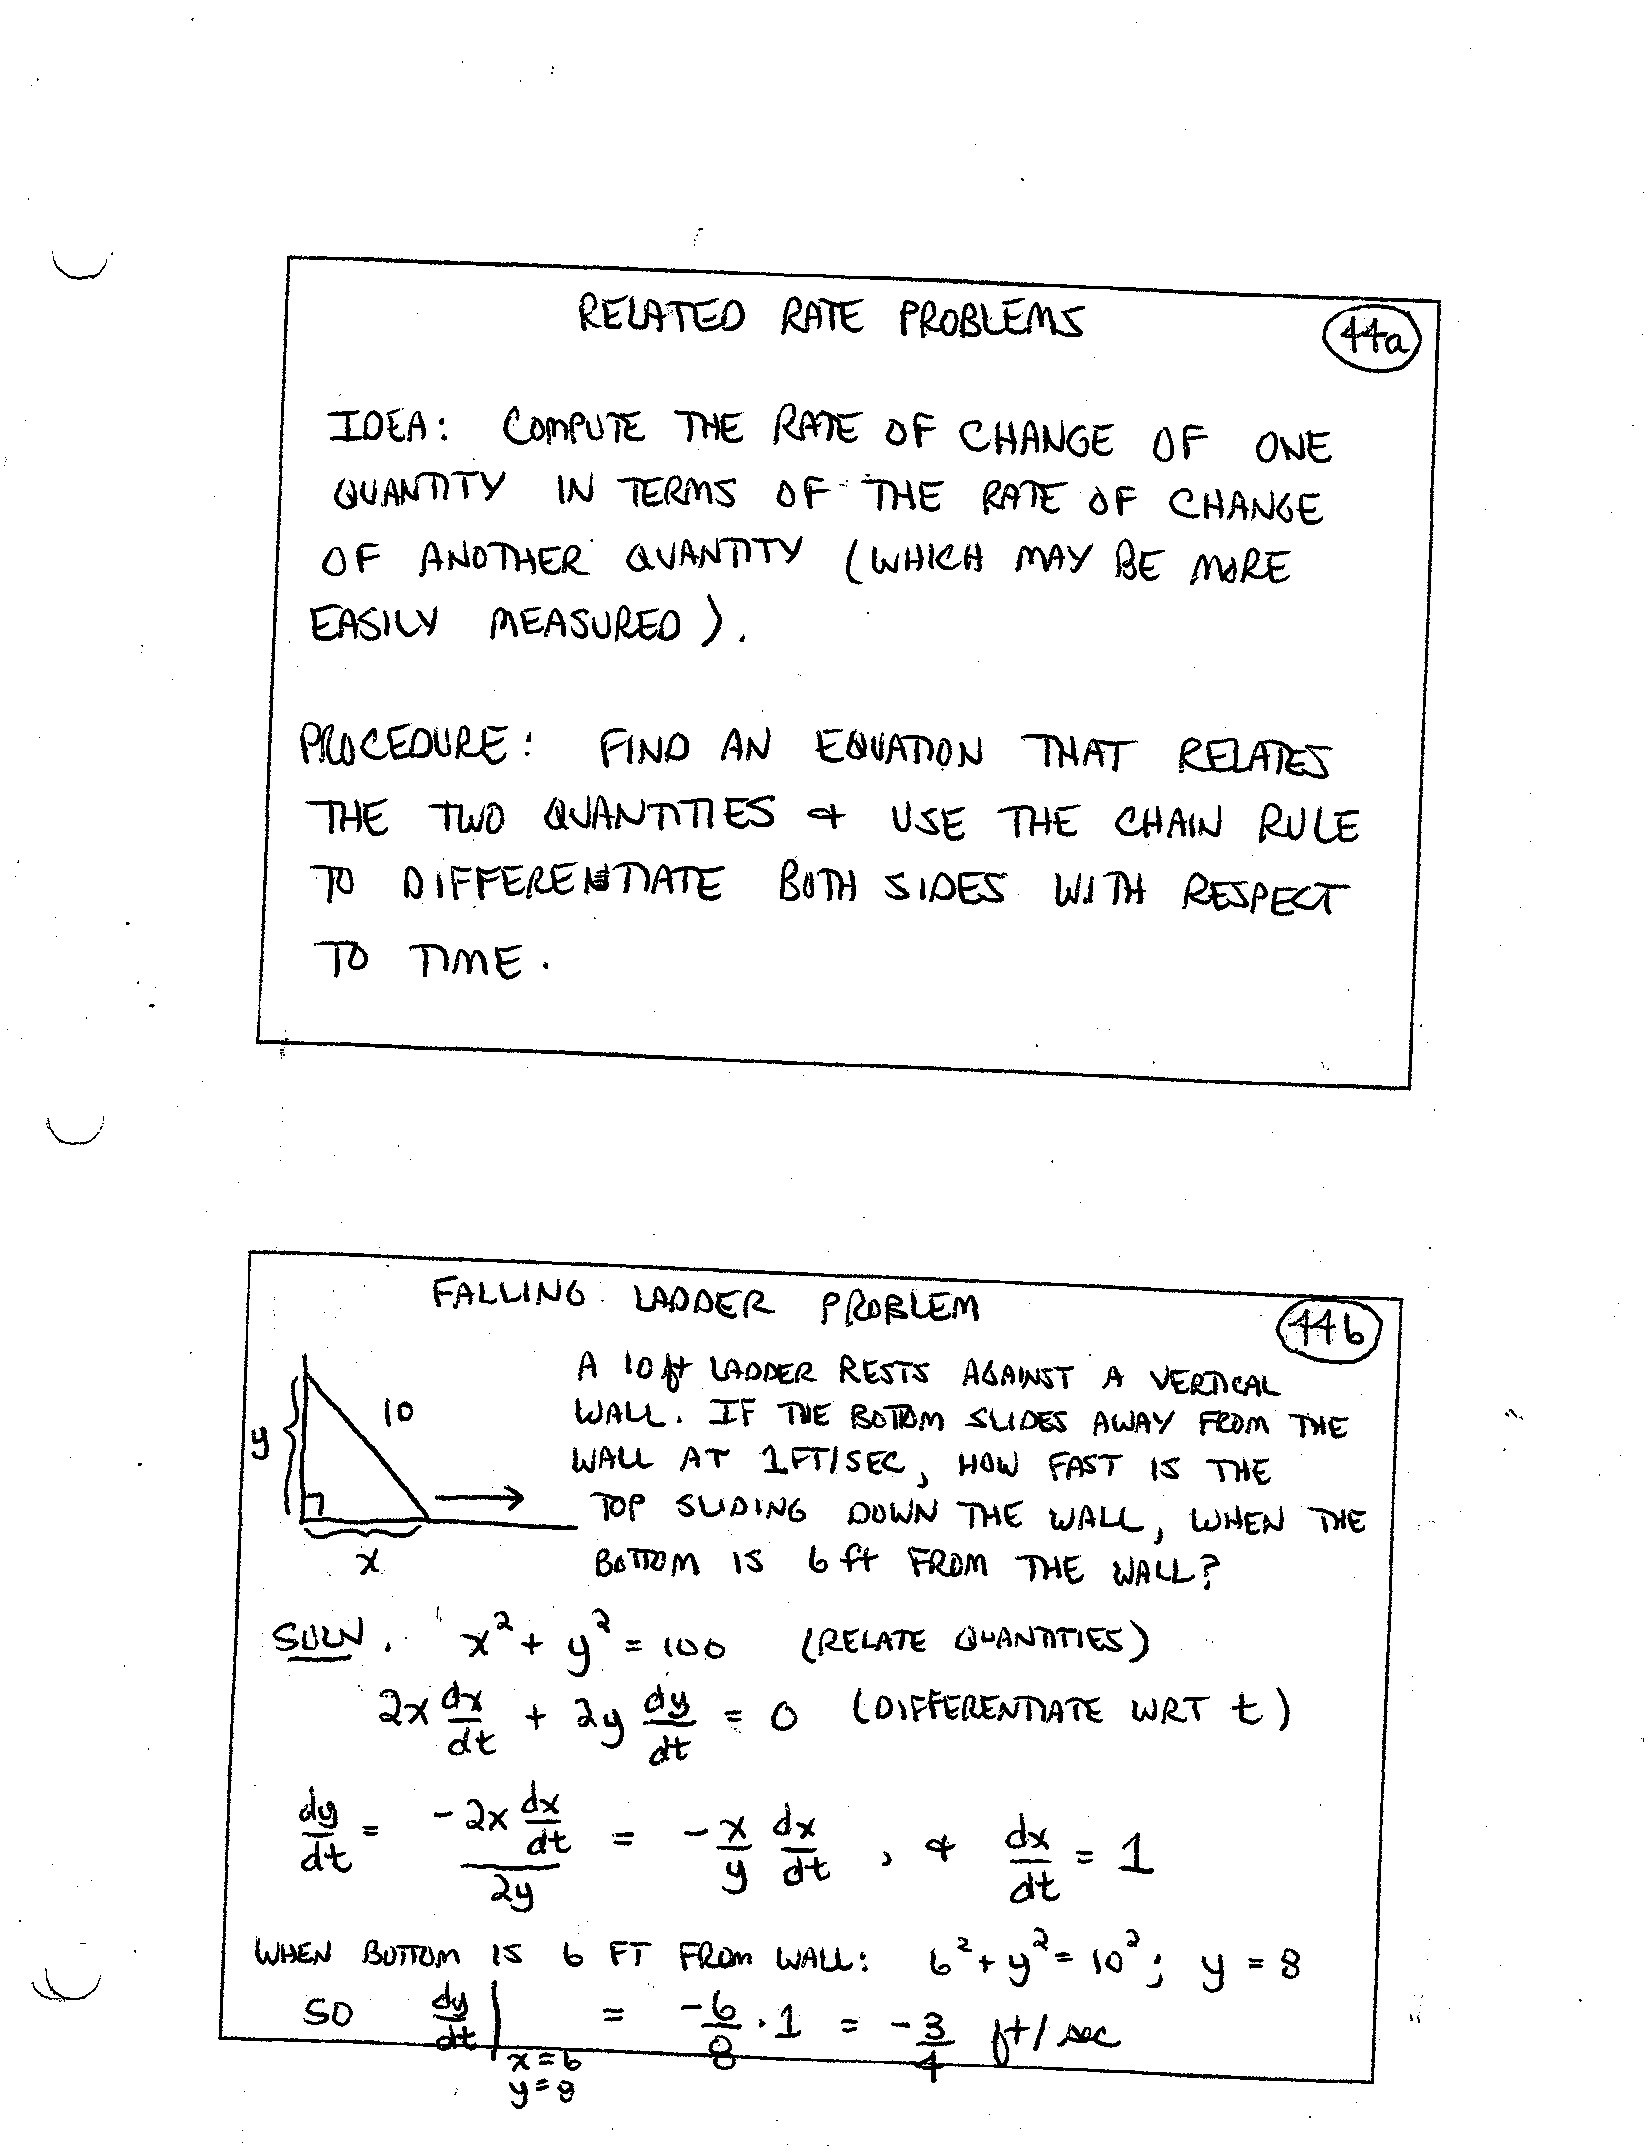 RELATED RATE PROBLEMS
44a
IDEA: COMPUTE THE RATE OF CHANGE OF ONE
QUANTITY IN TERMS OF THE RATE OF CHANGE
OF ANOTHER QUANTITY (WHICH MAY BE MORE
EASILY MEASURED).
PROCEDURE: FIND AN EQUATION THAT RELATES
THE TWO QUANTITIES & USE THE CHAIN RULE
TO DIFFERENTIATE BOTH SIDES WITH RESPECT
TO TIME.
FALLING LADDER PROBLEM
44b
A 10 ft LADDER RESTS AGAINST A VERTICAL
WALL. IF THE BOTTOM SLIDES AWAY FROM THE
WALL AT 1 FT/SEC, HOW FAST IS THE
TOP SLIDING DOWN THE WALL, WHEN THE
BOTTOM IS 6 ft FROM THE WALL?
y
10
x
SOLN. x² + y² = 100 (RELATE QUANTITIES)
2x dx/dt + 2y dy/dt = 0 (DIFFERENTIATE WRT t)
dy/dt = -2x dx/dt / 2y = -x/y dx/dt , & dx/dt = 1
WHEN BOTTOM IS 6 FT FROM WALL: 6² + y² = 10²; y = 8
SO dy/dt | x=6 y=8 = -6/8 · 1 = -3/4 ft/sec